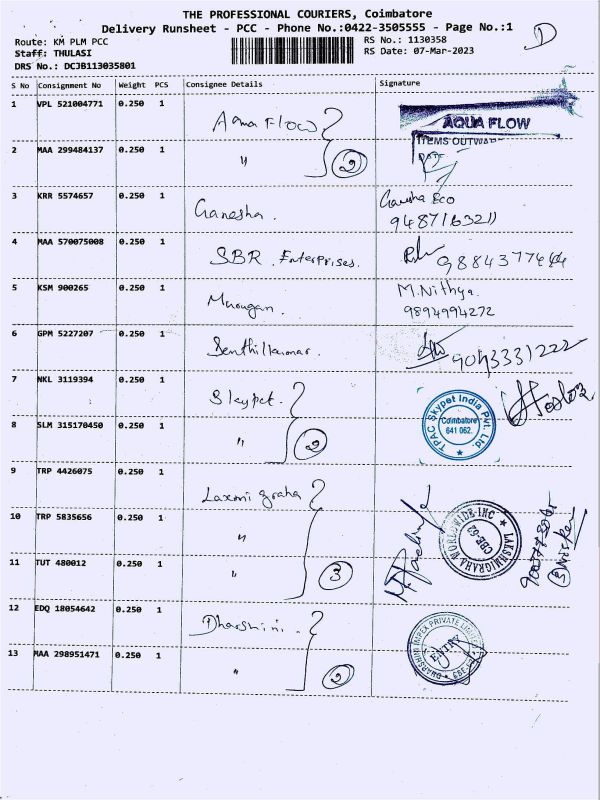 THE PROFESSIONAL COURIERS, Coimbatore
Delivery Runsheet - PCC - Phone No.:0422-3505555 - Page No.:1
D
Route: KM PLM PCC
RS No.: 1130358
Staff: THULASI
RS Date: 07-Mar-2023
DRS No.: DCJB113035801
S No Consignment No Weight PCS Consignee Details Signature
1 VPL 521004771 0.250 1 Aqua Flow
AQUA FLOW
ITEMS OUTWAR
2 MAA 299484137 0.250 1 " 2
DATE
3 KRR 5574657 0.250 1 Ganesha. Ganesha Eco
9487163211
4 MAA 570075008 0.250 1 SBR. Enterprises. 9884377444
5 KSM 900265 0.250 1 Murugan. M.Nithya.
9894994272
6 GPM 5227207 0.250 1 Senthilkumar. 9043331222
7 NKL 3119394 0.250 1 Skypet.
TPAC Skypet India Pvt. Ltd.
Coimbatore
641 062.
8 SLM 315170450 0.250 1 " 2
9 TRP 4426075 0.250 1 Laxmi graha
LAKSHMIGRAHA WORLDWIDE INC
CBE-62
10 TRP 5835656 0.250 1 "
11 TUT 480012 0.250 1 " 3
12 EDQ 18054642 0.250 1 Dharshini.
DHARSHINI IMPEX PRIVATE LIMITED
ENTRY
13 MAA 298951471 0.250 1 " 2